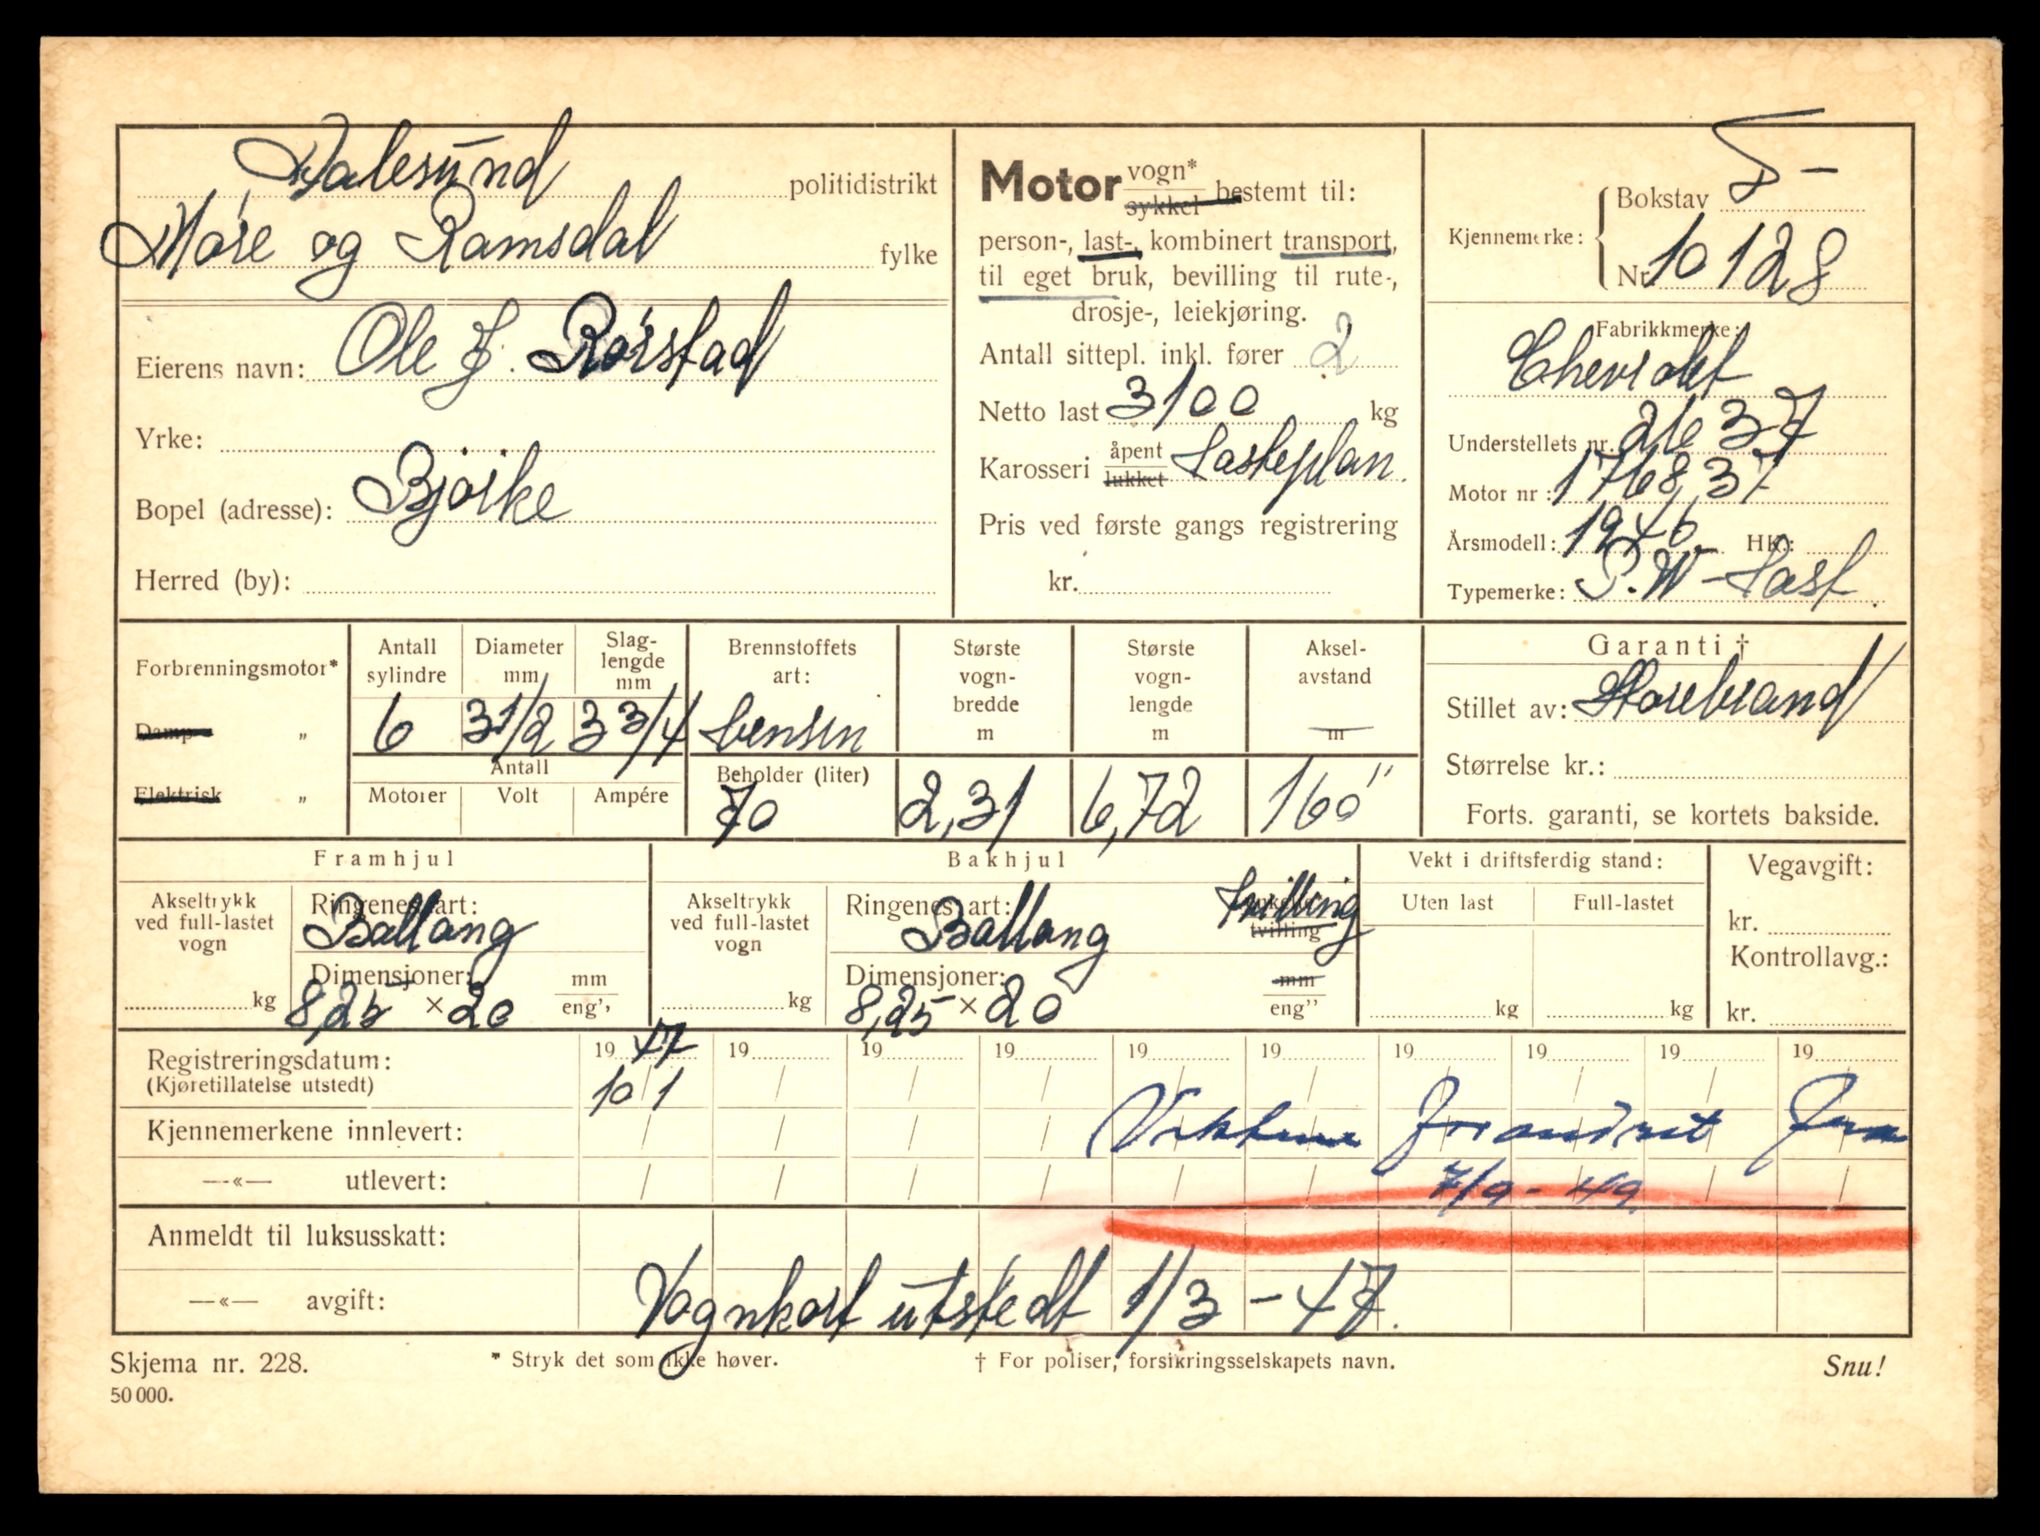 Aalesund politidistrikt
Møre og Romsdal fylke
Eierens navn: Ole J. Rørstad
Yrke:
Bopel (adresse): Bjørke
Herred (by):
Motor vogn* sykkel bestemt til:
person-, last-, kombinert transport,
til eget bruk, bevilling til rute-,
drosje-, leiekjøring.
Antall sittepl. inkl. fører 2
Netto last 3100 kg
Karosseri åpent lukket Lasteplan.
Pris ved første gangs registrering
kr.
Kjennemerke: Bokstav T-
Nr. 10128
Fabrikkmerke:
Chevrolet
Understellets nr. 2637
Motor nr: 176837
Årsmodell: 1946. HK.:
Typemerke: P.W-Last.
Forbrenningsmotor*
Damp- „
Elektrisk „
Antall sylindre
6
Diameter mm
3 1/2
Slag-lengde mm
3 3/4
Antall
Motorer Volt Ampére
Brennstoffets art:
bensin
Beholder (liter)
70
Største vogn-bredde m
2,31
Største vogn-lengde m
6,72
Aksel-avstand m
160"
Garanti †
Stillet av: Storebrand
Størrelse kr.:
Forts. garanti, se kortets bakside.
Framhjul
Akseltrykk ved full-lastet vogn
kg
Ringenes art:
Ballong
Dimensjoner: mm
8,25 × 20 eng''
Bakhjul
Akseltrykk ved full-lastet vogn
kg
Ringenes art: tvilling
Ballong tvilling
Dimensjoner: mm
8,25 × 20 eng''
Vekt i driftsferdig stand:
Uten last Full-lastet
kg kg
Vegavgift:
kr.
Kontrollavg.:
kr.
Registreringsdatum: 19 47 19 19 19 19 19 19 19 19 19
(Kjøretillatelse utstedt) 10/1
Kjennemerkene innlevert:
—«— utlevert:
7/9 - 49
Anmeldt til luksusskatt:
—«— avgift: Vognkort utstedt 1/3 - 47.
Skjema nr. 228. * Stryk det som ikke høver. † For poliser, forsikringsselskapets navn. Snu!
50 000.